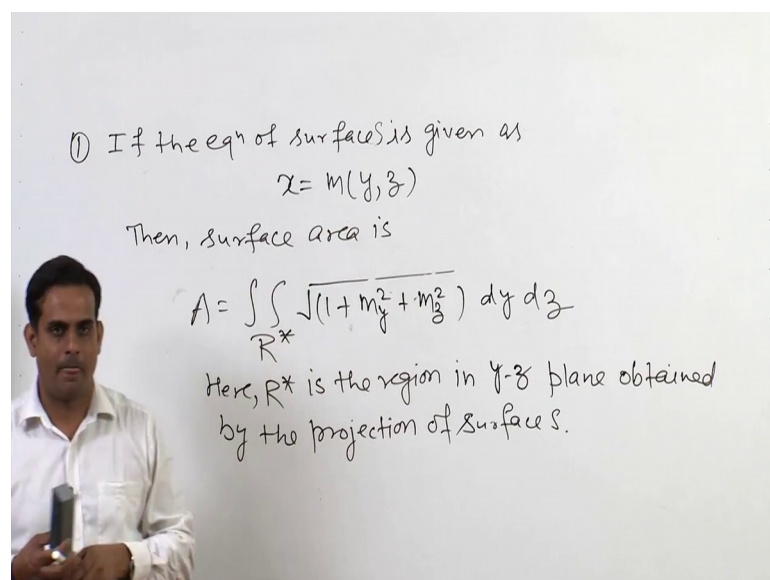 ① If the eqⁿ of surface S is given as
x = m(y, z)
Then, surface area is
A = ∫∫ √(1 + m_y² + m_z²) dy dz
R*
Here, R* is the region in y-z plane obtained
by the projection of surface S.